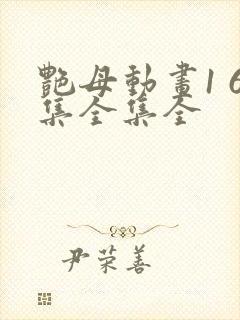 艷母動畫1 6
集全集全
尹荣善